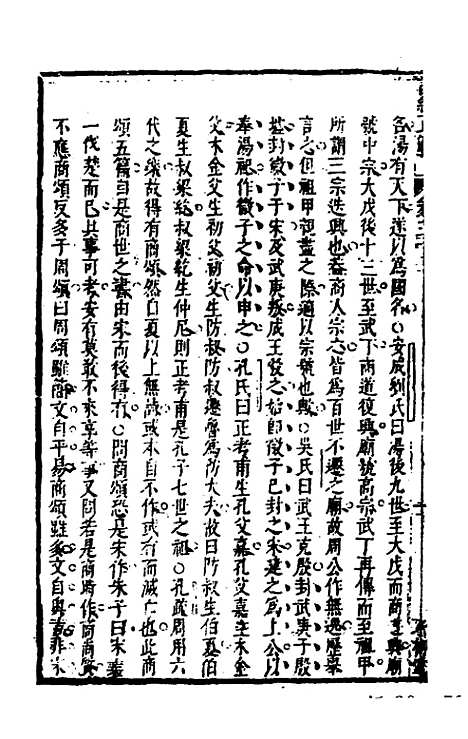 名湯有天下遂以爲國名○安成劉氏曰湯後九世至大戊而商道興廟
號中宗大戊後十三世至武丁商道復興廟號高宗武丁再傳而至祖甲
所謂三宗迭興也春商人宗之皆爲百世不遷之廟故周公作無逸歷舉
言之但祖甲親盡之際適以宗號也歟○吳氏曰武王克殷封武庚于殷
墟封微子于宋及武庚叛成王發之始即微子已封之宋建之爲上公以
奉湯祀作微子之命以申之○孔氏曰正考甫生孔父嘉孔父嘉生木金
父木金父生祁父祁父生防叔防叔遷魯爲防大夫故曰防叔生伯夏伯
夏生叔梁紇叔梁紇生仲尼則正考甫是孔子七世之祖○孔疏周用六
代之樂故得有商頌然自夏以上無詩或本自不作或有而滅亡也此商
頌五篇自是商世之書由宋而後得有○問商頌恐是宋作朱子曰宋襄
一伐楚而已其事可考安有莫敢不來享等事又問若是商時作商商質
不應商頌反多于周頌曰周頌雖簡文自平易商頌雖多文自奧古非宋